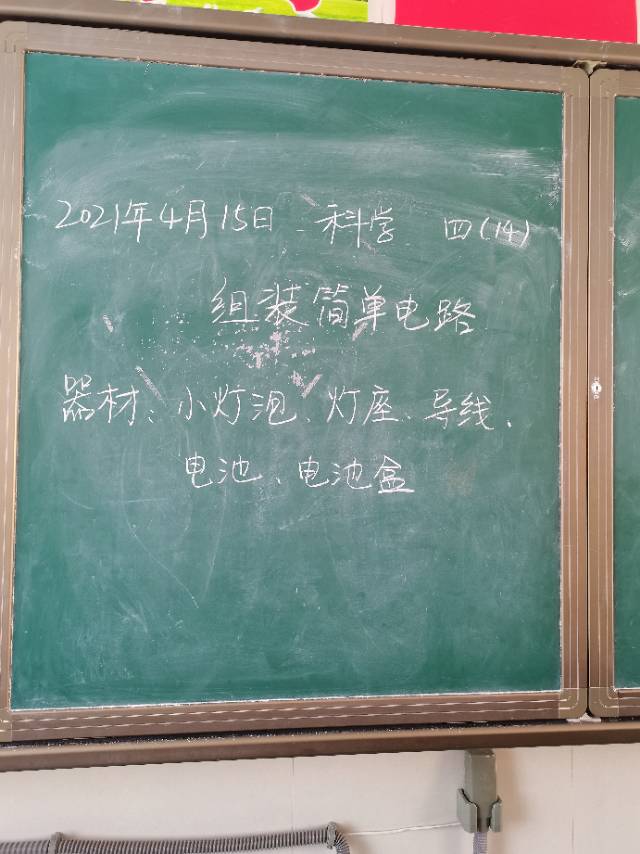 2021年4月15日 科学 四(14)
组装简单电路
器材：小灯泡、灯座、导线、
电池、电池盒